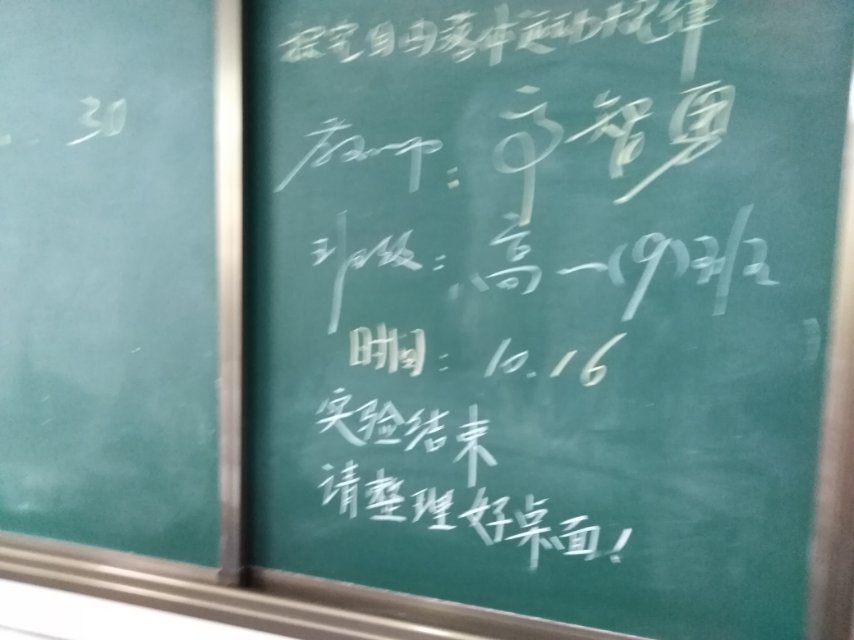 30
探究自由落体运动规律
教师:高智勇
班级:高一(9)班
时间:10.16
实验结束
请整理好桌面!